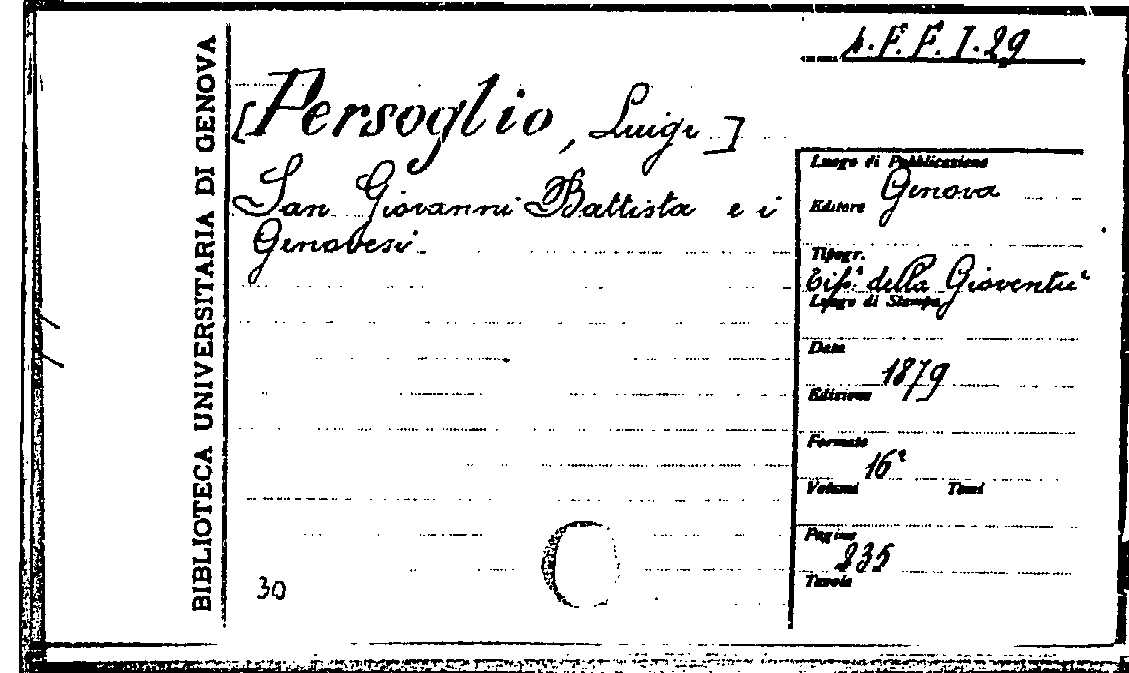 BIBLIOTECA UNIVERSITARIA DI GENOVA
4.F.F.I.29
[Persoglio, Luigi]
San Giovanni Battista e i
Genovesi
Luogo di Pubblicazione
Genova
Editore
Tipogr.
Tip.ª della Gioventù
Luogo di Stampa
Data
1879
Edizione
Formato
16°
Volumi Tomi
Pagine
235
Tavole
30